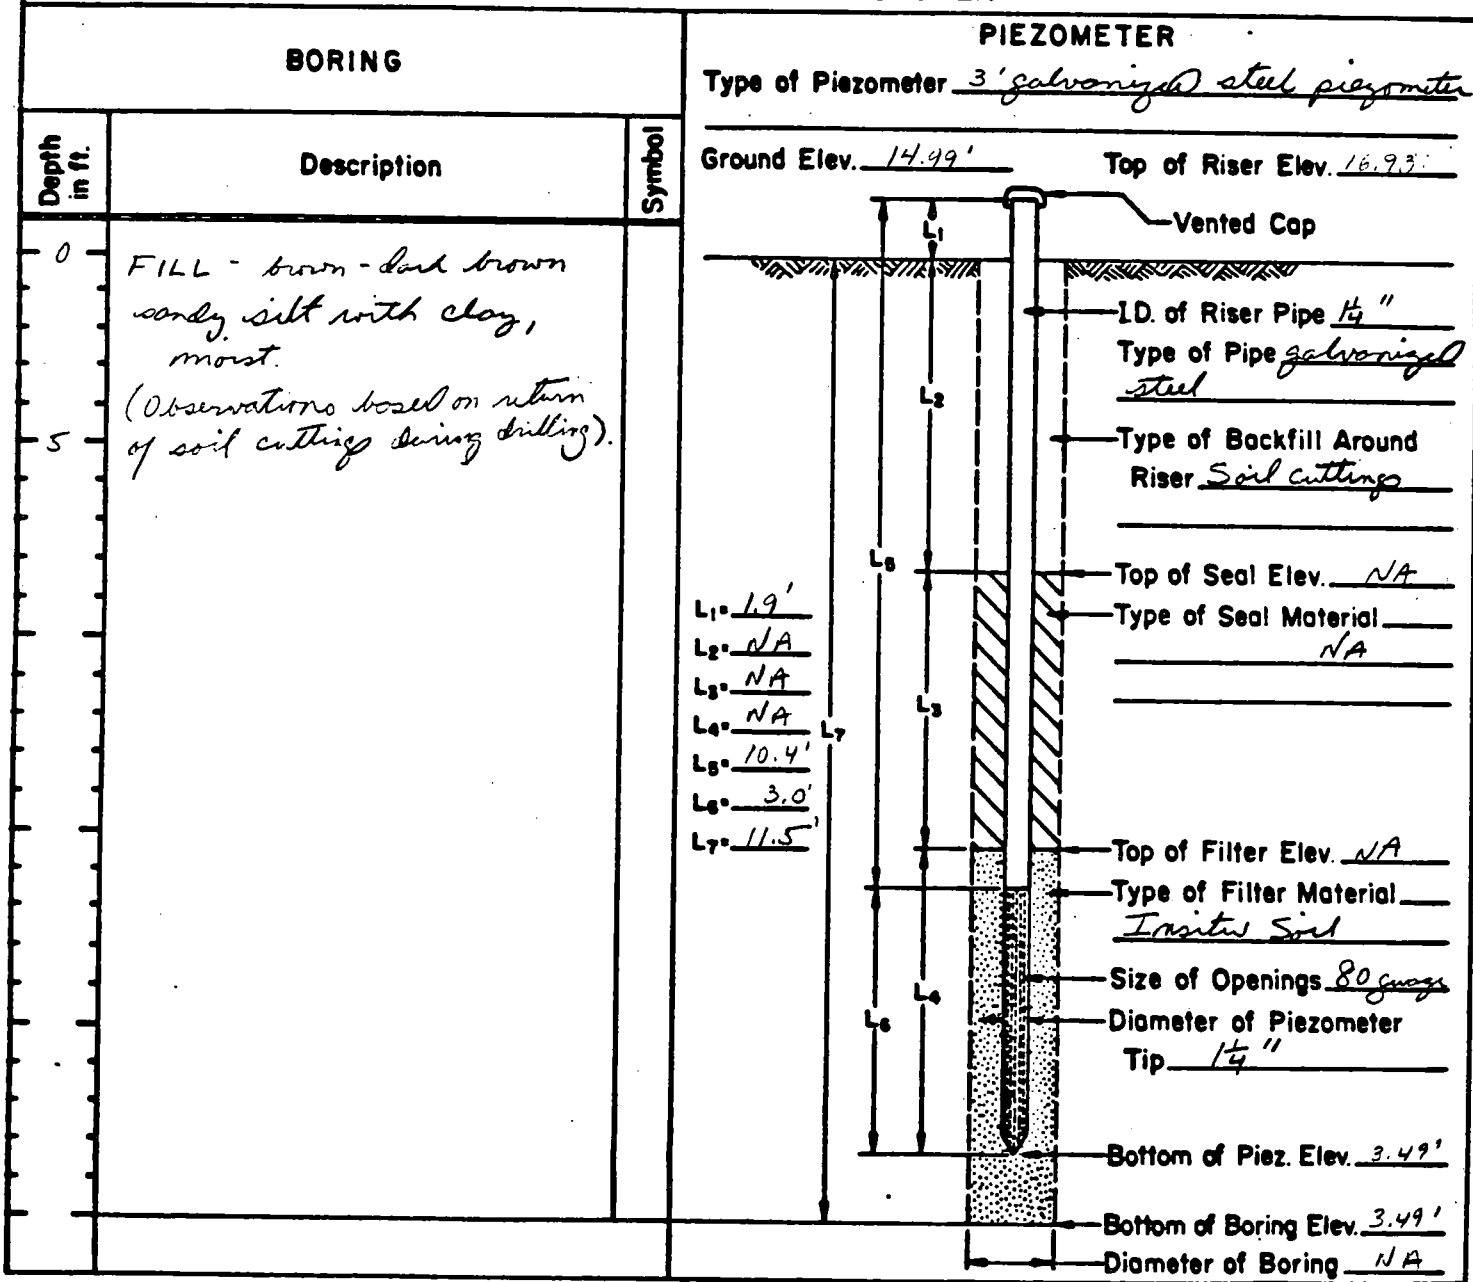 BORING
Depth in ft.
Description
Symbol
0
5
FILL - brown-dark brown
sandy silt with clay,
moist.
(Observations based on return
of soil cuttings during drilling).
PIEZOMETER
Type of Piezometer 3' galvanized steel piezometer
Ground Elev. 14.99' Top of Riser Elev. 16.93'
Vented Cap
L1
I.D. of Riser Pipe 1¼"
Type of Pipe galvanized
steel
L2
Type of Backfill Around
Riser Soil cuttings
L5
Top of Seal Elev. NA
Type of Seal Material
NA
L1= 1.9'
L2= NA
L3= NA
L4= NA
L5= 10.4'
L6= 3.0'
L7= 11.5'
L3
L7
Top of Filter Elev. NA
Type of Filter Material
Insitu Soil
Size of Openings 80 guage
L4
L6
Diameter of Piezometer
Tip 1¼"
Bottom of Piez. Elev. 3.49'
Bottom of Boring Elev. 3.49'
Diameter of Boring NA